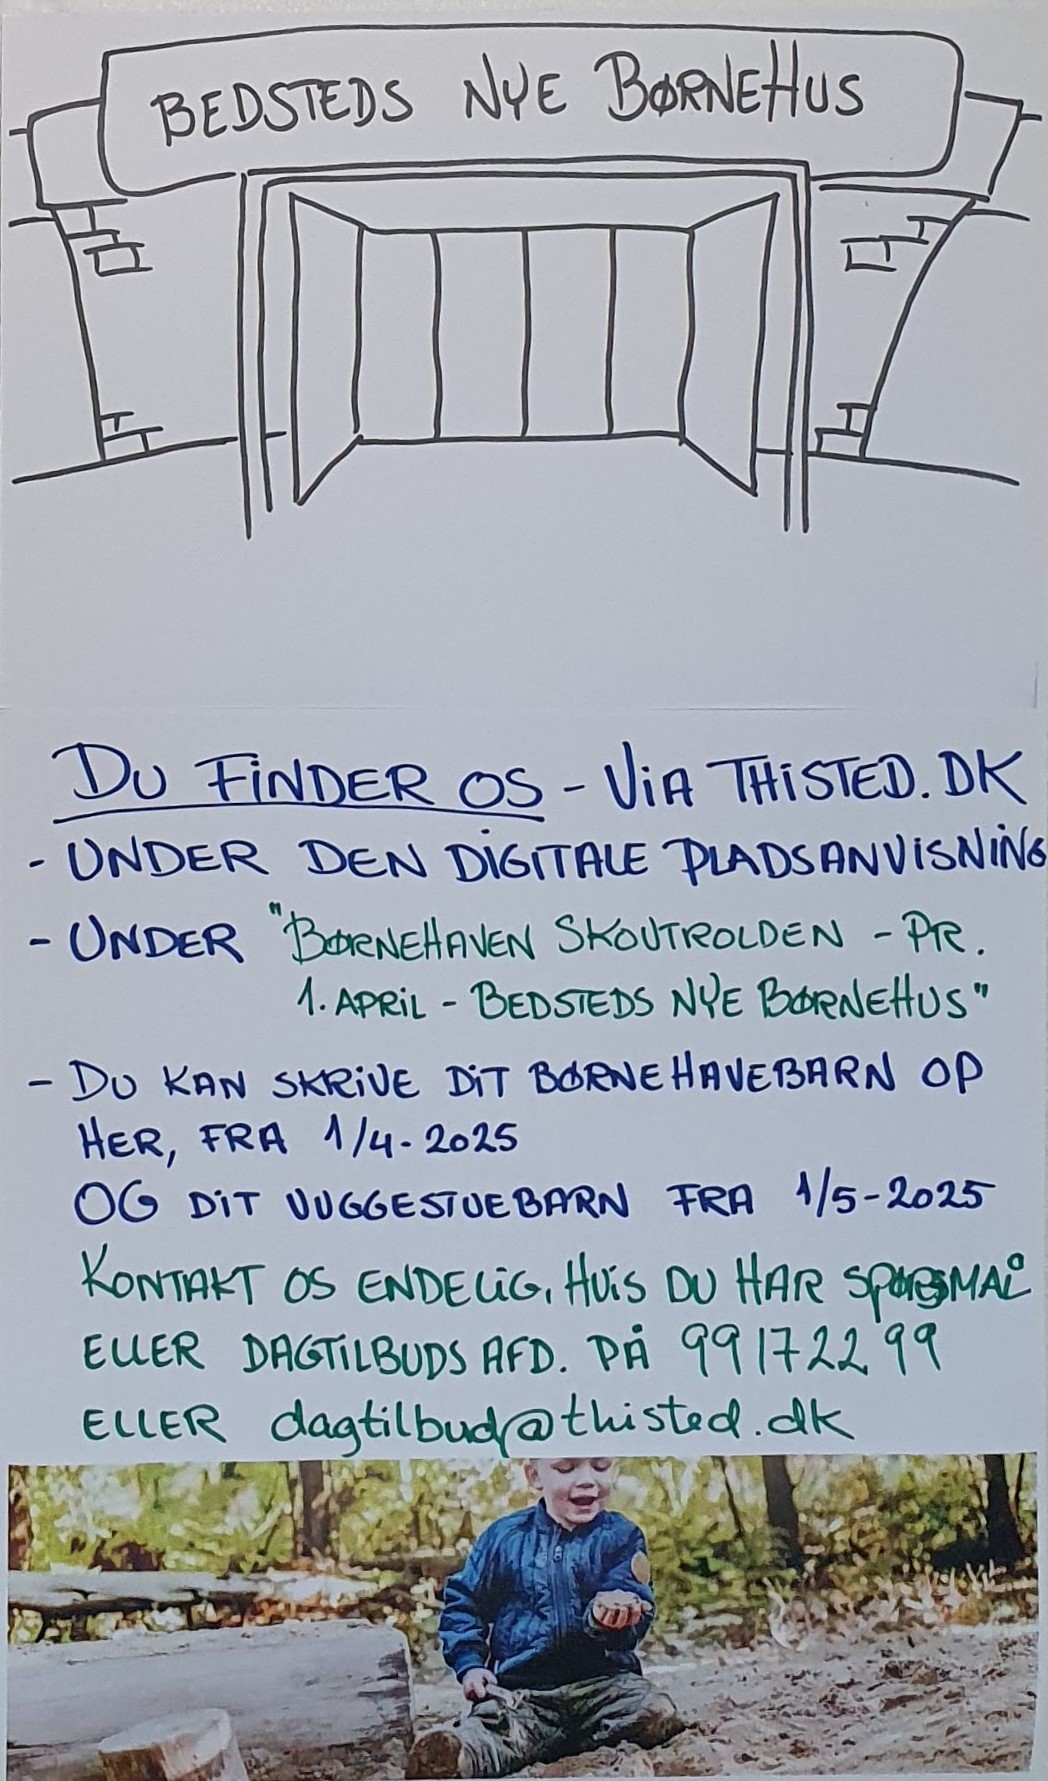 BEDSTEDS NYE BØRNEHUS
DU FINDER OS - VIA THISTED.DK
- UNDER DEN DIGITALE PLADSANVISNING
- UNDER "BØRNEHAVEN SKOVTROLDEN - PR.
1. APRIL - BEDSTEDS NYE BØRNEHUS"
- DU KAN SKRIVE DIT BØRNEHAVEBARN OP
HER, FRA 1/4-2025
OG DIT VUGGESTUEBARN FRA 1/5-2025
KONTAKT OS ENDELIG, HVIS DU HAR SPØRGSMÅL
ELLER DAGTILBUDS AFD. PÅ 99172299
ELLER dagtilbud@thisted.dk